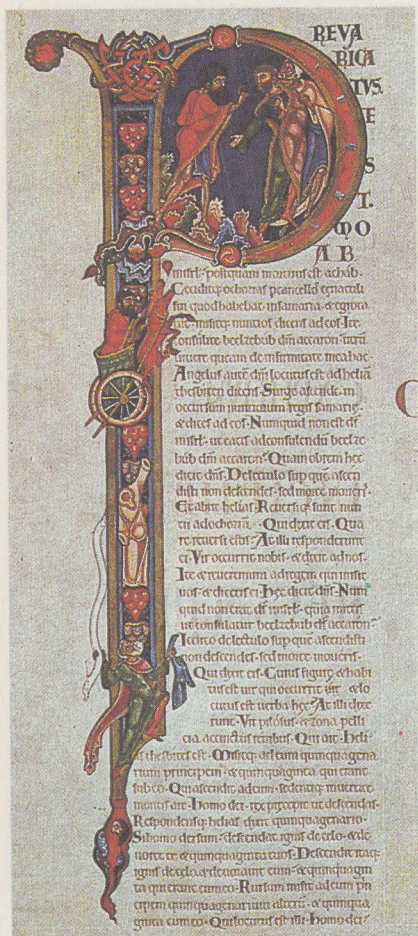 P REVA
RICA
TVS.
E
S
T.
MO
AB
in isrł postquam mortuus est achab.
Ceciditq; ochozias p cancellos cenaculi
sui quod habebat in samaria & egrota
uit. misitq; nuntios dicens ad eos. Ite
consulite beelzebub dm̄ accaron utrū
uiuere queam de infirmitate mea hac.
Angelus autē dn̄i locutus est ad heliā
thesbiten dicens. Surge ascende in
occursum nuntiorum regis samarie.
& dices ad eos. Numquid non est ds̄
in isrł ut eatis ad consulendū beelze
bub dm̄ accaron? Quam obrem hec
dicit dn̄s. De lectulo sup quē ascen
disti non descendes. sed morte morieris.
Et abiit helias. Reuersiq; sunt nun
tii ad ochoziā. Qui dixit eis. Qua
re reuersi estis? At illi responderunt
ei. Vir occurrit nobis. & dixit ad nos.
Ite & reuertimini ad regem qui misit
uos. & dicetis ei. Hec dicit dn̄s. Num
quid non erat ds̄ in isrł. quia mittis
ut consulatur beelzebub ds̄ accaron?
Iccirco de lectulo sup quē ascendisti
non descendes. sed morte morieris.
Qui dixit eis. Cuius figure & habi
tus est uir qui occurrit uobis & lo
cutus est uerba hec? At illi dixe
runt. Vir pilosus. & zona pelli
cia accinctus renibus. Qui ait. Heli
as thesbites est. Misitq; ad eum quinquagena
rium principem. & quinquaginta qui erant
sub eo. Qui ascendit ad eum. sedentiq; in uertice
montis ait. Homo dei. rex precepit ut descendas.
Respondensq; helias dixit quinquagenario.
Si homo dei sum. descendat ignis de celo. & de
uoret te & quinquaginta tuos. Descendit itaq;
ignis de celo. & deuorauit eum. & quinquagin
ta qui erant cum eo. Rursum misit ad eum prin
cipem quinquagenarium alterū. & quinqua
ginta cum eo. Qui locutus est illi. Homo dei